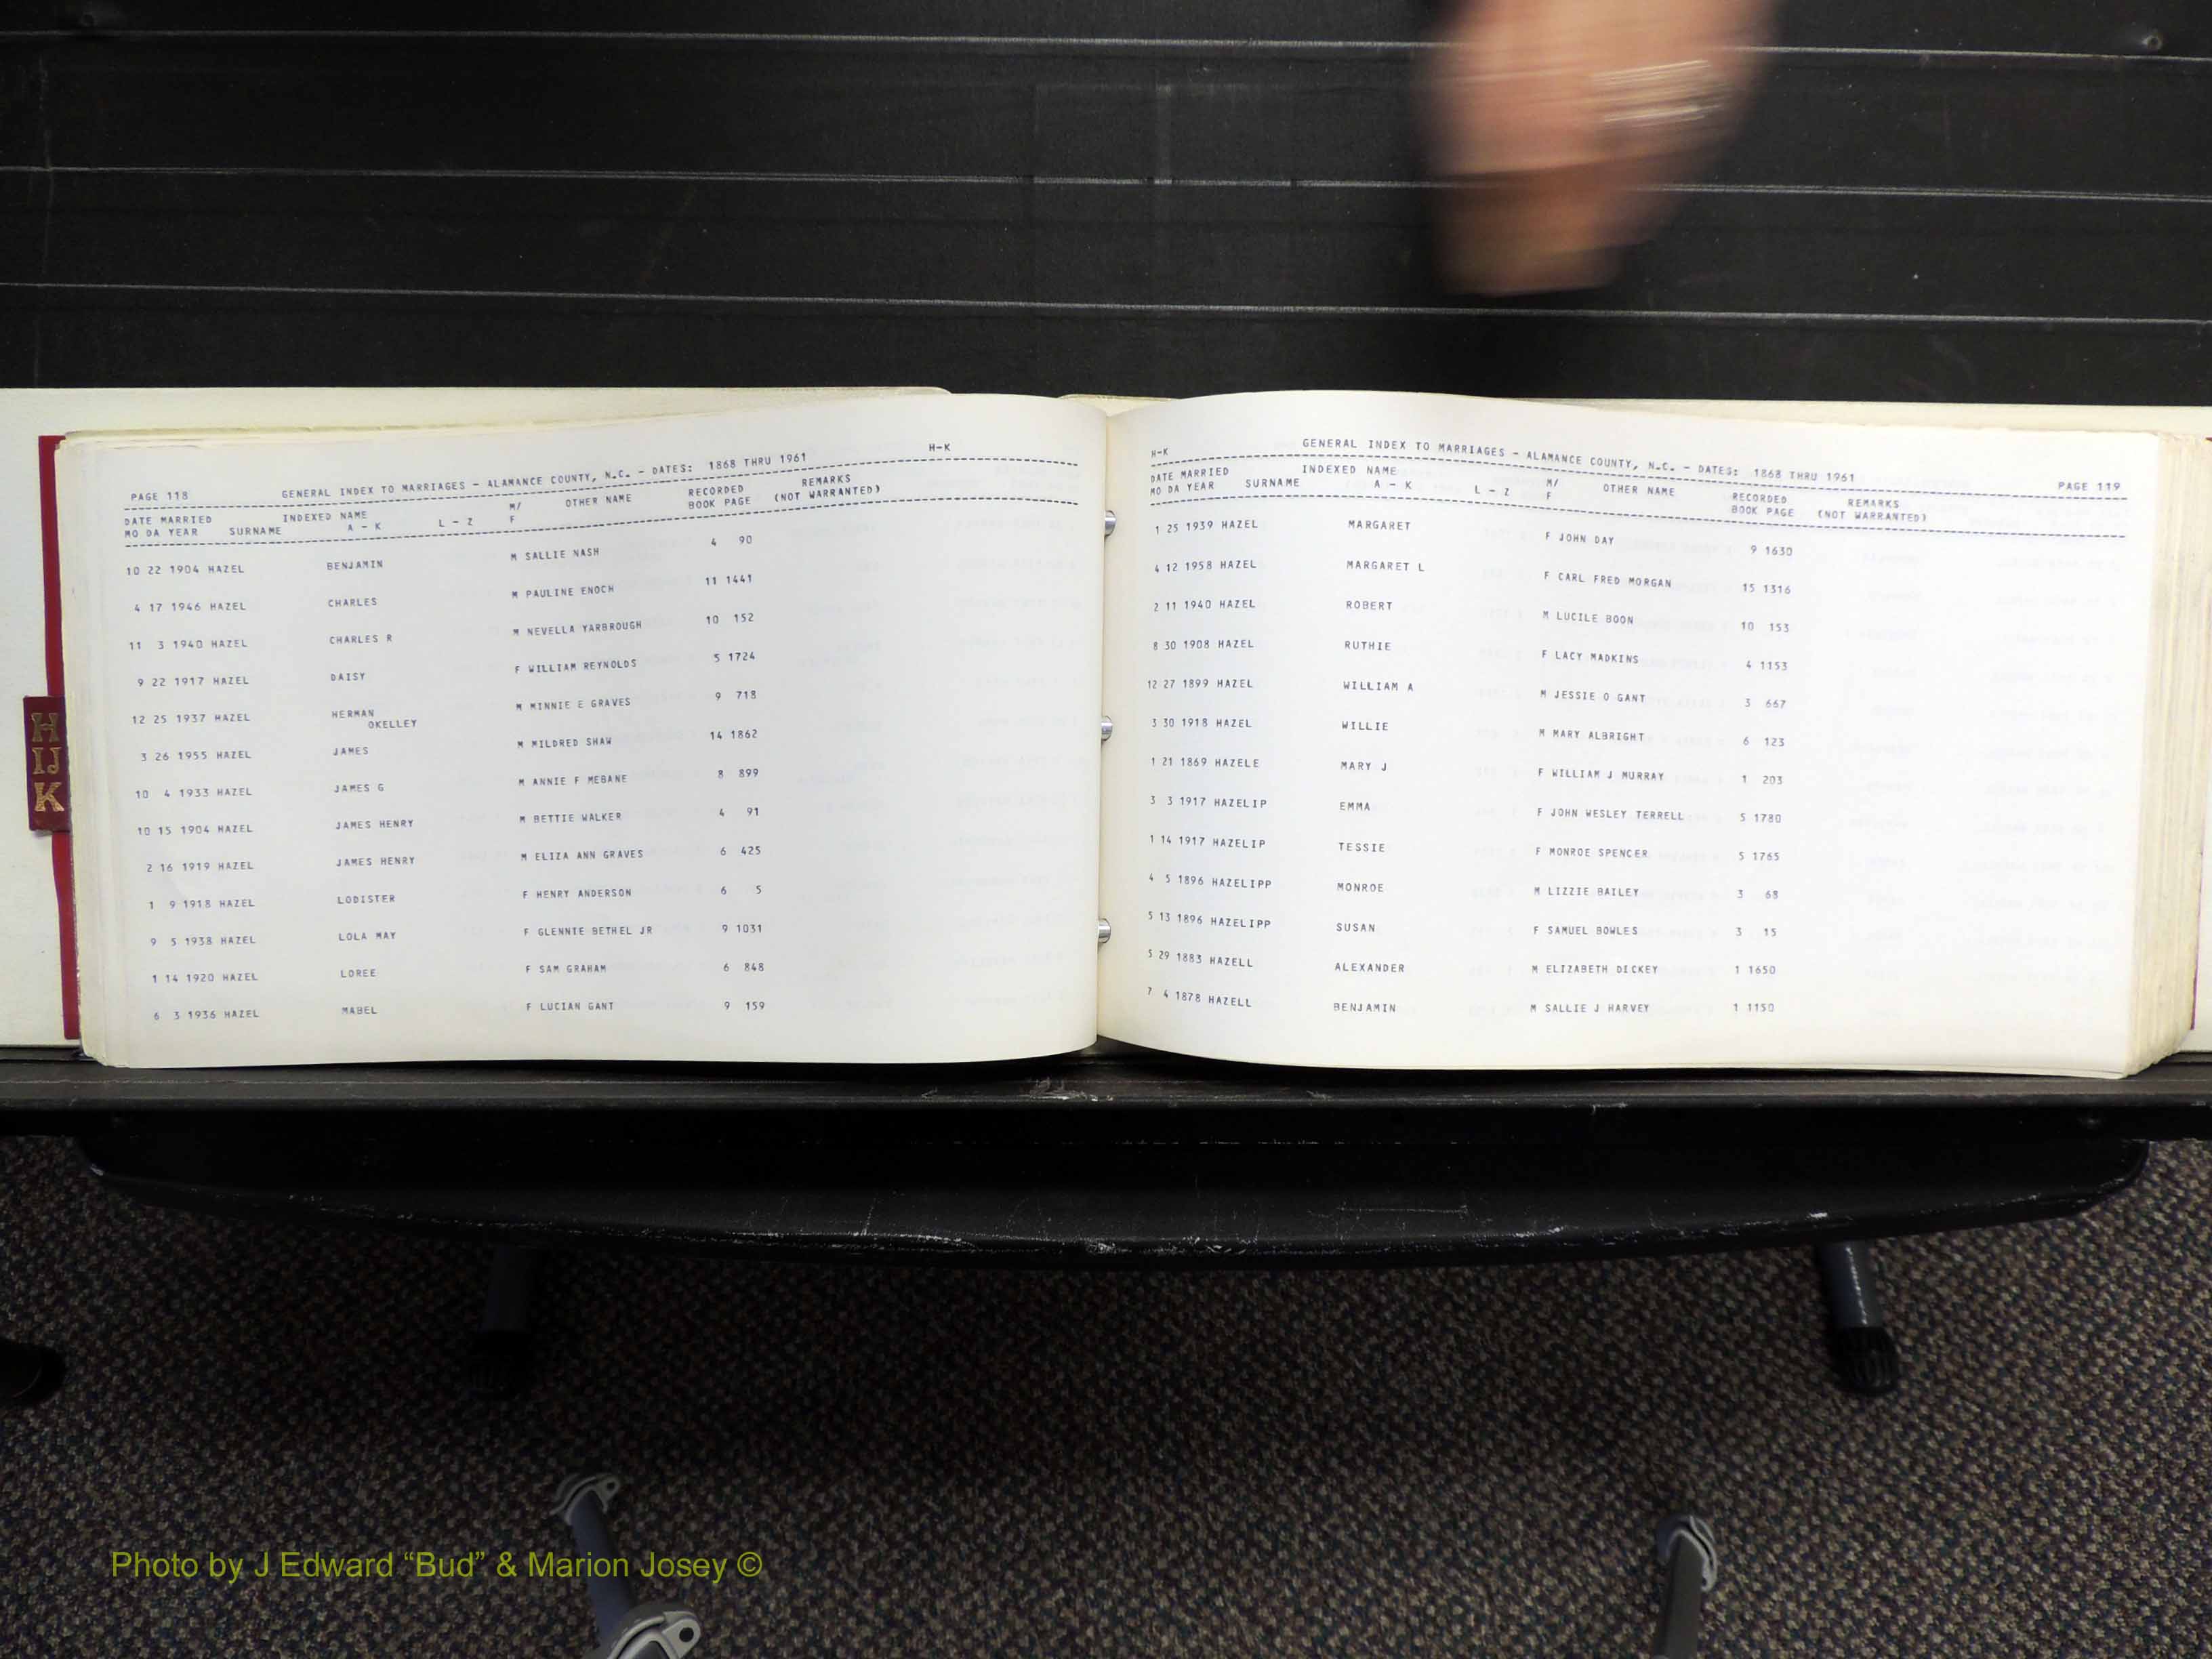 PAGE 118 GENERAL INDEX TO MARRIAGES - ALAMANCE COUNTY, N.C. - DATES: 1868 THRU 1961 H-K
DATE MARRIED INDEXED NAME M/ OTHER NAME RECORDED REMARKS
MO DA YEAR SURNAME A - K L - Z F BOOK PAGE (NOT WARRANTED)
10 22 1904 HAZEL BENJAMIN M SALLIE NASH 4 90
4 17 1946 HAZEL CHARLES M PAULINE ENOCH 11 1441
11 3 1940 HAZEL CHARLES R M NEVELLA YARBROUGH 10 152
9 22 1917 HAZEL DAISY F WILLIAM REYNOLDS 5 1724
12 25 1937 HAZEL HERMAN M MINNIE E GRAVES 9 718
OKELLEY
3 26 1955 HAZEL JAMES M MILDRED SHAW 14 1862
10 4 1933 HAZEL JAMES G M ANNIE F MEBANE 8 899
10 15 1904 HAZEL JAMES HENRY M BETTIE WALKER 4 91
2 16 1919 HAZEL JAMES HENRY M ELIZA ANN GRAVES 6 425
1 9 1918 HAZEL LODISTER F HENRY ANDERSON 6 5
9 5 1938 HAZEL LOLA MAY F GLENNIE BETHEL JR 9 1031
1 14 1920 HAZEL LOREE F SAM GRAHAM 6 848
6 3 1936 HAZEL MABEL F LUCIAN GANT 9 159
H-K GENERAL INDEX TO MARRIAGES - ALAMANCE COUNTY, N.C. - DATES: 1868 THRU 1961 PAGE 119
DATE MARRIED INDEXED NAME M/ OTHER NAME RECORDED REMARKS
MO DA YEAR SURNAME A - K L - Z F BOOK PAGE (NOT WARRANTED)
1 25 1939 HAZEL MARGARET F JOHN DAY 9 1630
4 12 1958 HAZEL MARGARET L F CARL FRED MORGAN 15 1316
2 11 1940 HAZEL ROBERT M LUCILE BOON 10 153
8 30 1908 HAZEL RUTHIE F LACY MADKINS 4 1153
12 27 1899 HAZEL WILLIAM A M JESSIE O GANT 3 667
3 30 1918 HAZEL WILLIE M MARY ALBRIGHT 6 123
1 21 1869 HAZELE MARY J F WILLIAM J MURRAY 1 203
3 3 1917 HAZELIP EMMA F JOHN WESLEY TERRELL 5 1780
1 14 1917 HAZELIP TESSIE F MONROE SPENCER 5 1765
4 5 1896 HAZELIPP MONROE M LIZZIE BAILEY 3 68
5 13 1896 HAZELIPP SUSAN F SAMUEL BOWLES 3 15
5 29 1883 HAZELL ALEXANDER M ELIZABETH DICKEY 1 1650
7 4 1878 HAZELL BENJAMIN M SALLIE J HARVEY 1 1150
H
IJ
K
Photo by J Edward “Bud” & Marion Josey ©